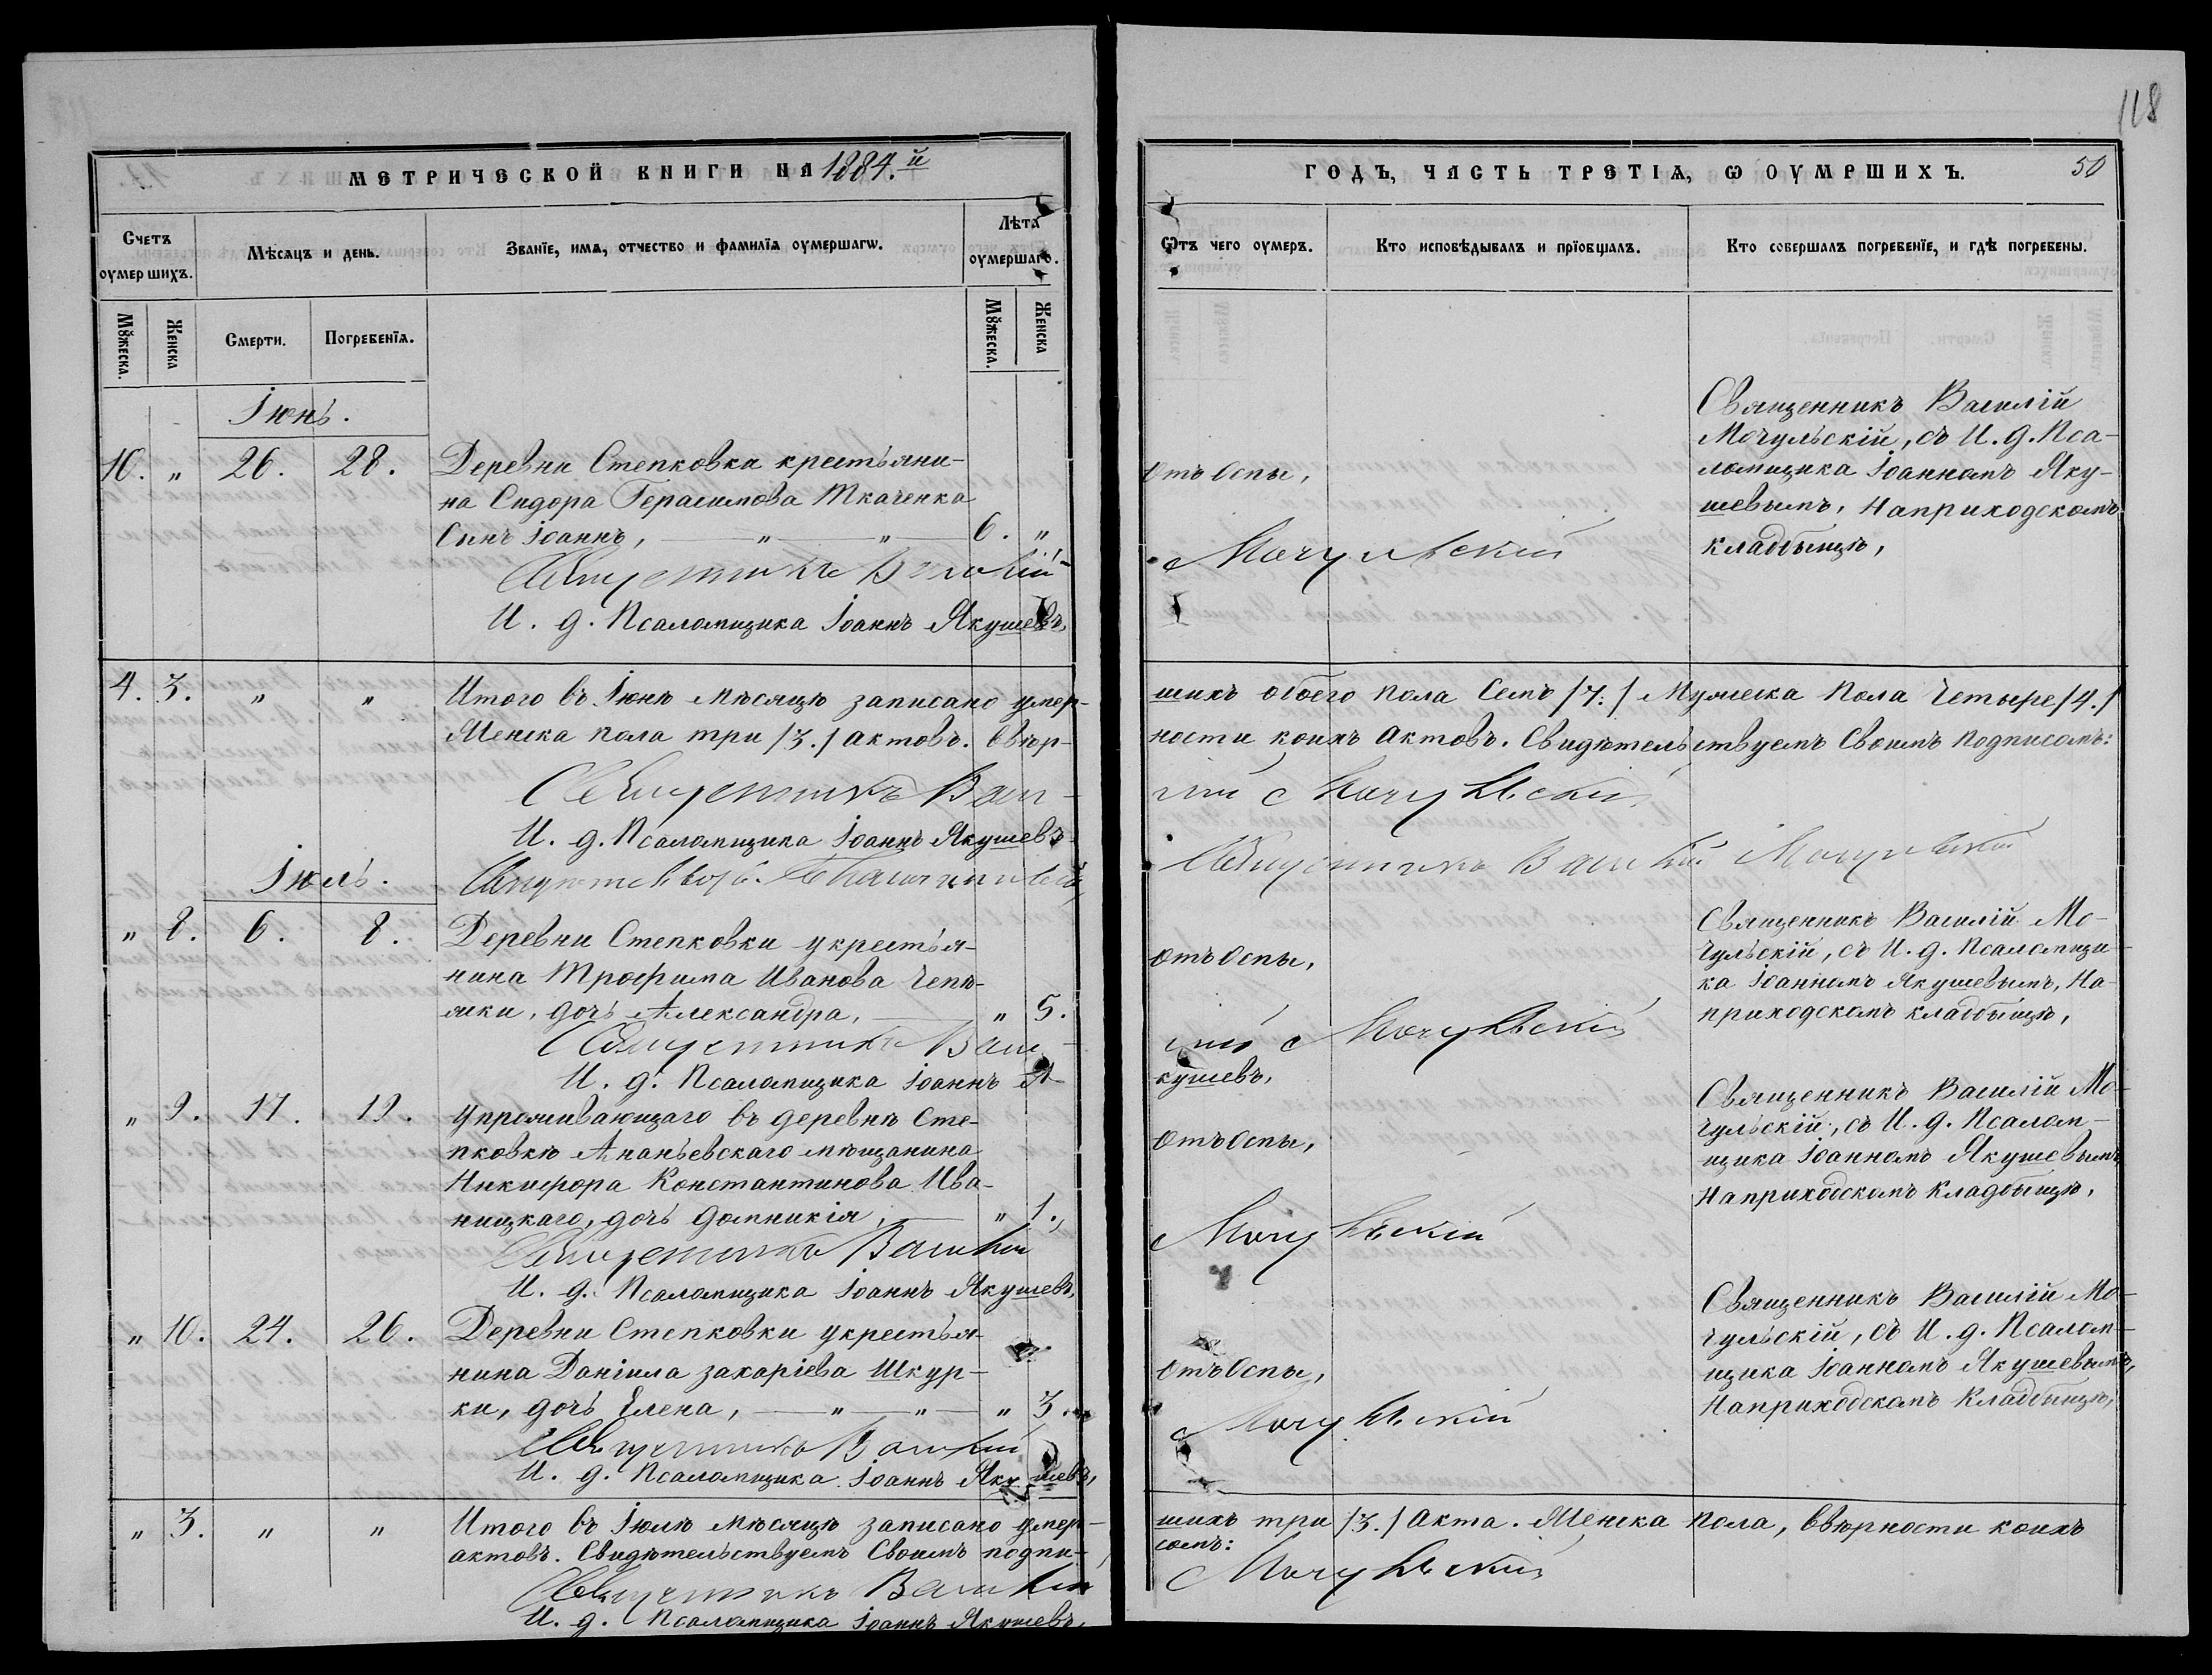 118
МЕТРИЧЕСКОЙ КНИГИ НА 1884.й
ГОДЪ, ЧАСТЬ ТРЕТІѦ, Ѡ ОУМРШИХЪ.
50
Счетъ оумершихъ.
Мѣсѧцъ и день.
Званїе, имѧ, отчество и фамилїѧ оумершагѡ.
Лѣта оумершаго.
Ѿтъ чего оумеръ.
Кто исповѣдывалъ и прїобщалъ.
Кто совершалъ погребенїе, и гдѣ погребены.
Мꙋжеска.
Женска
Смерти.
Погребенїѧ.
Мꙋжеска.
Женска
Іюнь.
10. „ 26. 28.
Деревни Степковка крестьяни-
на Сидора Герасимова Ткаченка
Синъ Іоаннъ, — „ — „ — 6. „
Священникъ Василій
И. д. Псаломщика Іоаннъ Якушевъ,
отъ Оспы,
Мочульскій
Священникъ Василій
Мочульскій, съ И. д. Пса-
ломщика Іоанномъ Яку-
шевымъ, Наприходскомъ
кладбыщѣ,
4. 3. „ „
Итого въ Іюнѣ мѣсяцѣ записано умер-
шихъ обоего пола Семъ /7./ Мужеска Пола Четыре /4./
Женска пола три /3./ актовъ. Ввѣр-
ности коихъ Актовъ. Свидѣтельствуемъ Своимъ подписомъ:
Священникъ Васи-
лій Мочульскій
И. д. Псаломщика Іоаннъ Якушевъ
Священникъ Василій Мочульскій
Іюль.
„ 8. 6. 8.
Деревни Степковки укрестья-
нина Трофима Иванова Чепѣ-
жки, дочь Александра, — „ 5.
Священникъ Васи-
И. д. Псаломщика Іоаннъ Я-
отъ Оспы,
лій Мочульскій
кушевъ,
Священникъ Василій Мо-
чульскій, съ И. д. Псаломщи-
ка Іоанномъ Якушевымъ, На-
приходскомъ кладбыщѣ,
„ 9. 17. 19.
Упроживающаго въ деревнѣ Сте-
пковкѣ Ананьевскаго мѣщанина
Никифора Константинова Ива-
ницкаго, дочь Домникія, — „ 1.,
Священникъ Василій
И. д. Псаломщика Іоаннъ Якушевъ,
отъ Оспы,
Мочульскій
Священникъ Василій Мо-
чульскій, съ И. д. Псалом-
щика Іоанномъ Якушевымъ
Наприходскомъ Кладбыщѣ,
„ 10. 24. 26.
Деревни Степковки укрестья-
нина Даніила Захаріева Шкур-
ки, дочь Елена, — „ — „ — „ 3.
Священникъ Василій
И. д. Псаломщика Іоаннъ Якушевъ,
отъ Оспы,
Мочульскій
Священникъ Василій Мо-
чульскій, съ И. д. Псалом-
щика Іоанномъ Якушевымъ,
Наприходскомъ Кладбыщѣ,
„ 3. „ „
Итого въ Іюлѣ мѣсяцѣ записано умер-
шихъ три /3./ Акта. Женска Пола, Ввѣрности коихъ
актовъ. Свидѣтельствуемъ Своимъ подпи-
сомъ:
Священникъ Василій
Мочульскій
И. д. Псаломщика Іоаннъ Якушевъ,